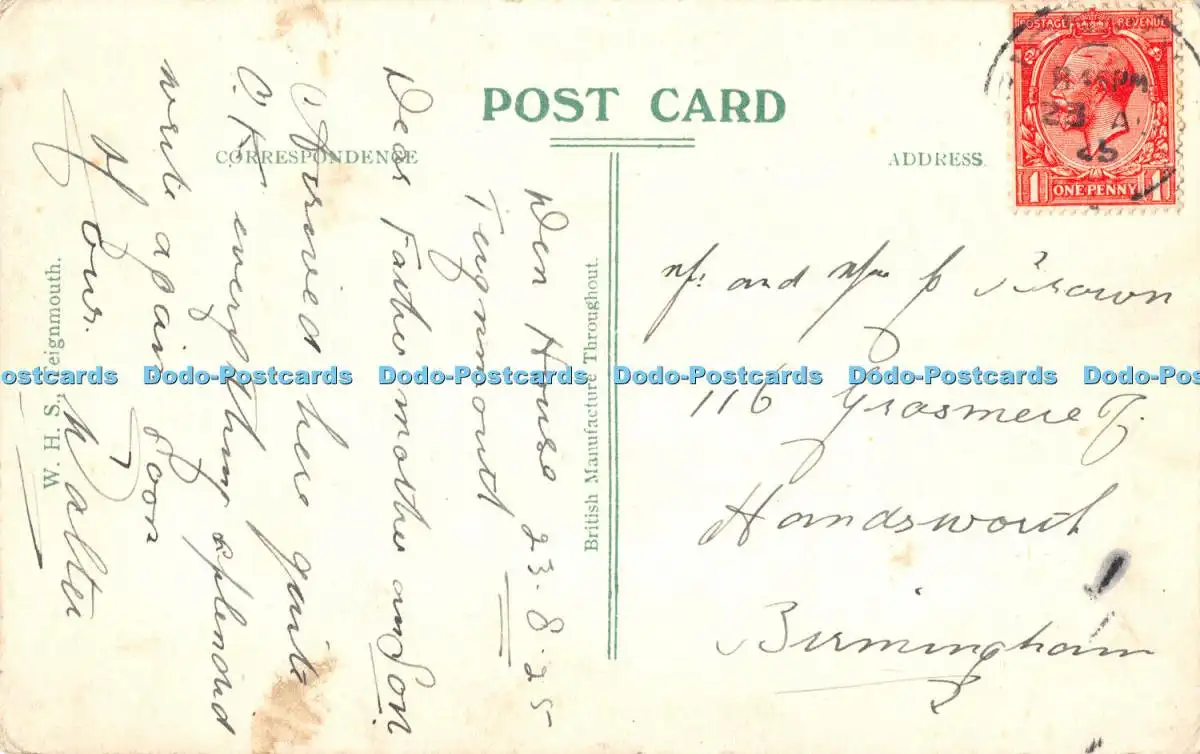 POST CARD
CORRESPONDENCE
ADDRESS.
POSTAGE REVENUE
8 45 PM
23 A.
25
1 ONE PENNY 1
Den House 23.8.25
Teignmouth
Dear Father mother and Son
Arrived here quite
O.K everything splendid
write again soon
Your. Walter
W. H. S., Teignmouth.
British Manufacture Throughout.
Mr and Mrs J Brown
116 Grasmere R.
Handsworth
Birmingham
Dodo-Postcards Dodo-Postcards Dodo-Postcards Dodo-Postcards